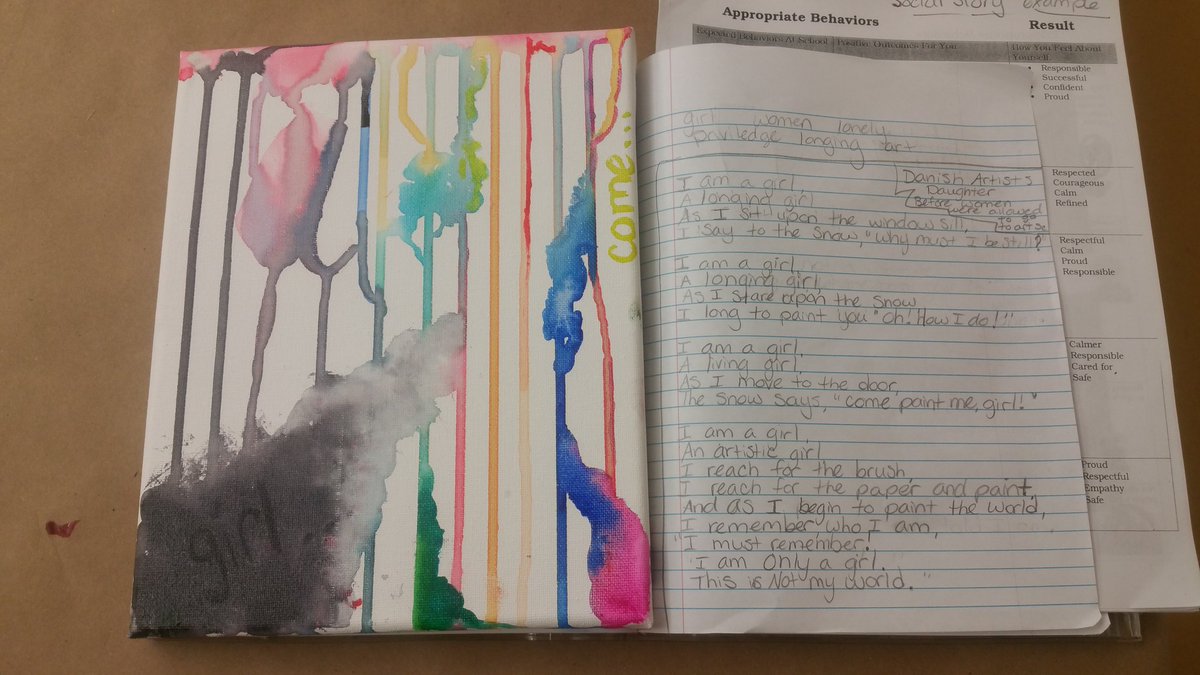 come...
girl
Social Story example
Appropriate Behaviors Result
Expected Behaviors At School Positive Outcomes For You How You Feel About Yourself
Responsible
Successful
Confident
Proud
Respected
Courageous
Calm
Refined
Respectful
Calm
Proud
Responsible
Calmer
Responsible
Cared for
Safe
Proud
Respectful
Empathy
Safe
girl women lonely
priviledge longing art
Danish Artists
Daughter
Before women
were allowed
to go
to art
I am a girl,
A longing girl
As I sit upon the window sill,
I say to the snow, "why must I be still?
I am a girl,
A longing girl,
As I stare upon the snow,
I long to paint you "oh! How I do!"
I am a girl,
A living girl,
As I move to the door,
The snow says, "come paint me, girl!"
I am a girl,
An artistic girl
I reach for the brush,
I reach for the paper and paint,
And as I begin to paint the world,
I remember who I am,
"I must remember!
"I am only a girl.
This is Not my world."